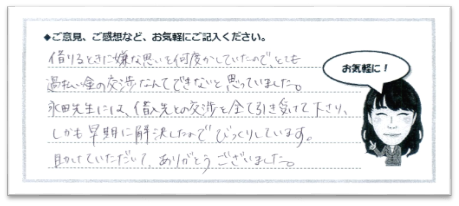 ◆ご意見、ご感想など、お気軽にご記入ください。
借りるときに嫌な思いを何度かしていたので、とても
過払い金の交渉なんてできないと思っていました。
永田先生には、借入先との交渉を全て引き受けて下さり、
しかも早期に解決したのでびっくりしています。
助けていただいて、ありがとうございました。
お気軽に！